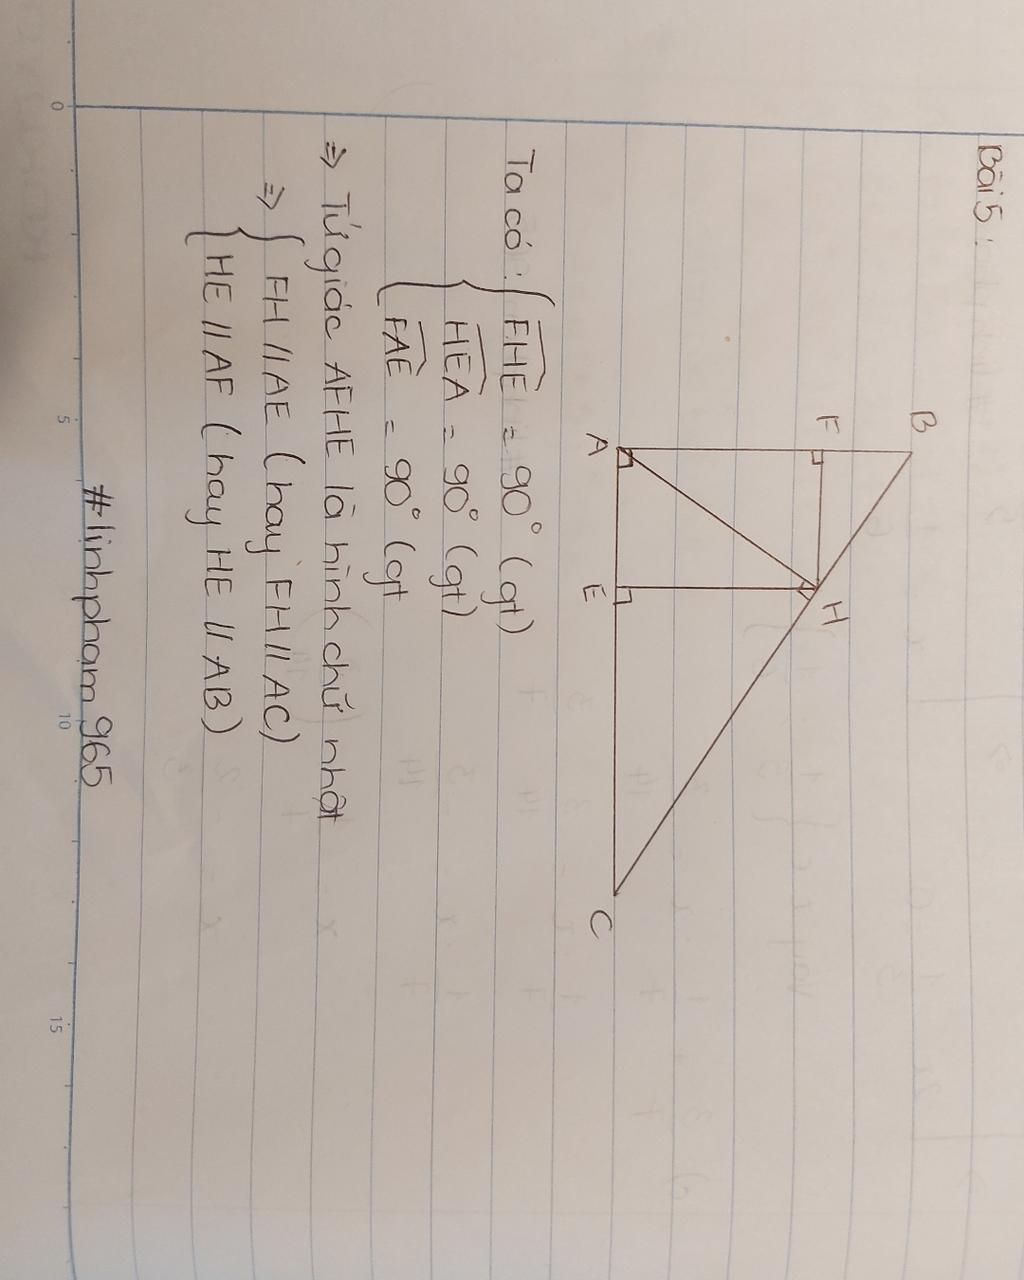 Bài 5:
B
F
H
A
E
C
Ta có: { FHE = 90° (gt)
HEA = 90° (gt)
FAE = 90° (gt
=> Tứ giác AFHE là hình chữ nhật
=> { FH // AE (hay FH // AC)
HE // AF (hay HE // AB)
#linhpham965
0
5
10
15